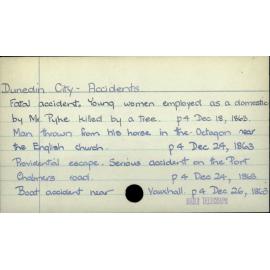 Dunedin City - Accidents
Fatal accident. Young women employed as a domestic
by Mr. Pyke killed by a tree. p4 Dec 18, 1863.
Man thrown from his horse in the Octagon near
the English church. p4 Dec 24, 1863
Providential escape. Serious accident on the Port
Chalmers road. p4 Dec 24, 1863
Boat accident near Vauxhall. p4 Dec 26, 1863
DAILY TELEGRAPH